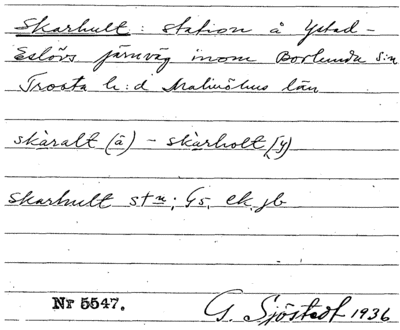 Skarhult: station å Ystad-
Eslövs järnväg inom Borlunda s:n
Frosta h:d Malmöhus län
skàralt (ä) - skàrholt (y)
Skarhult stn; Gs, ek, jb
Nr 5547. G. Sjöstedt 1936